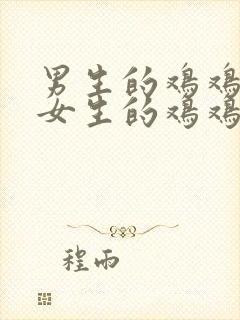 男生的鸡鸡
女生的鸡鸡
程雨